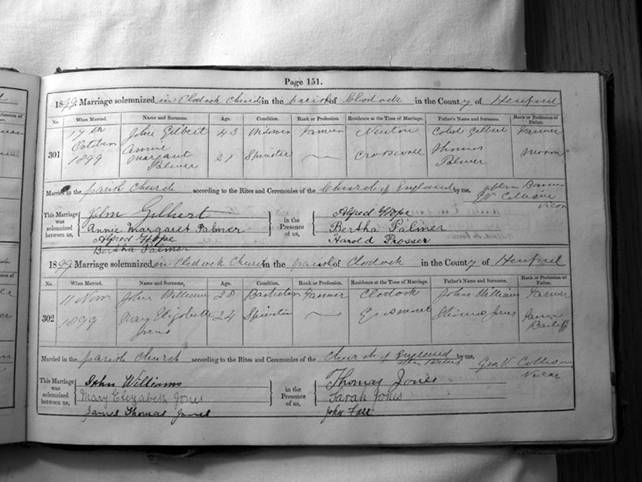 Page 151.
1899. Marriage solemnized in Clodock Church in the parish of Clodock in the County of Hereford
No. When Married. Name and Surname. Age. Condition. Rank or Profession. Residence at the Time of Marriage. Father's Name and Surname. Rank or Profession of Father.
301 17th October 1899 John Gilbert 43 Widower Farmer Newton Gilbert Farmer
Annie Margaret Palmer 21 Spinster Thomas Palmer
Married in the parish Church according to the Rites and Ceremonies of the Church of England by me,
Vicar
This Marriage was solemnized between us,
John Gilbert
Annie Margaret Palmer
Alfred Hope
Bertha Palmer
in the Presence of us,
Alfred Hope
Bertha Palmer
Harold Prosser
1899. Marriage solemnized in Clodock Church in the parish of Clodock in the County of Hereford
No. When Married. Name and Surname. Age. Condition. Rank or Profession. Residence at the Time of Marriage. Father's Name and Surname. Rank or Profession of Father.
302 11 Nov 1899 John Williams 28 Bachelor Farmer Clodock John Williams Farmer
Mary Elizabeth Jones 24 Spinster Jones Farm Bailiff
Married in the parish Church according to the Rites and Ceremonies of the Church of England by me,
Vicar
This Marriage was solemnized between us,
John Williams
Mary Elizabeth Jones
James Thomas Jones
in the Presence of us,
Thomas Jones
Sarah Jones
John